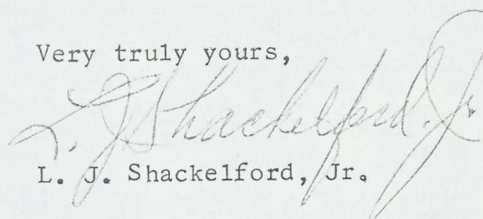 Very truly yours,
L. J. Shackelford, Jr.
L. J. Shackelford, Jr.